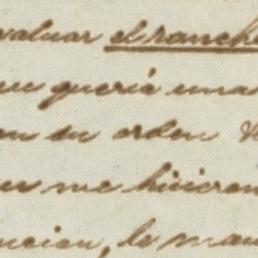 valuar el ranch
queria una
en su orden
me hicieron
ncion, le man